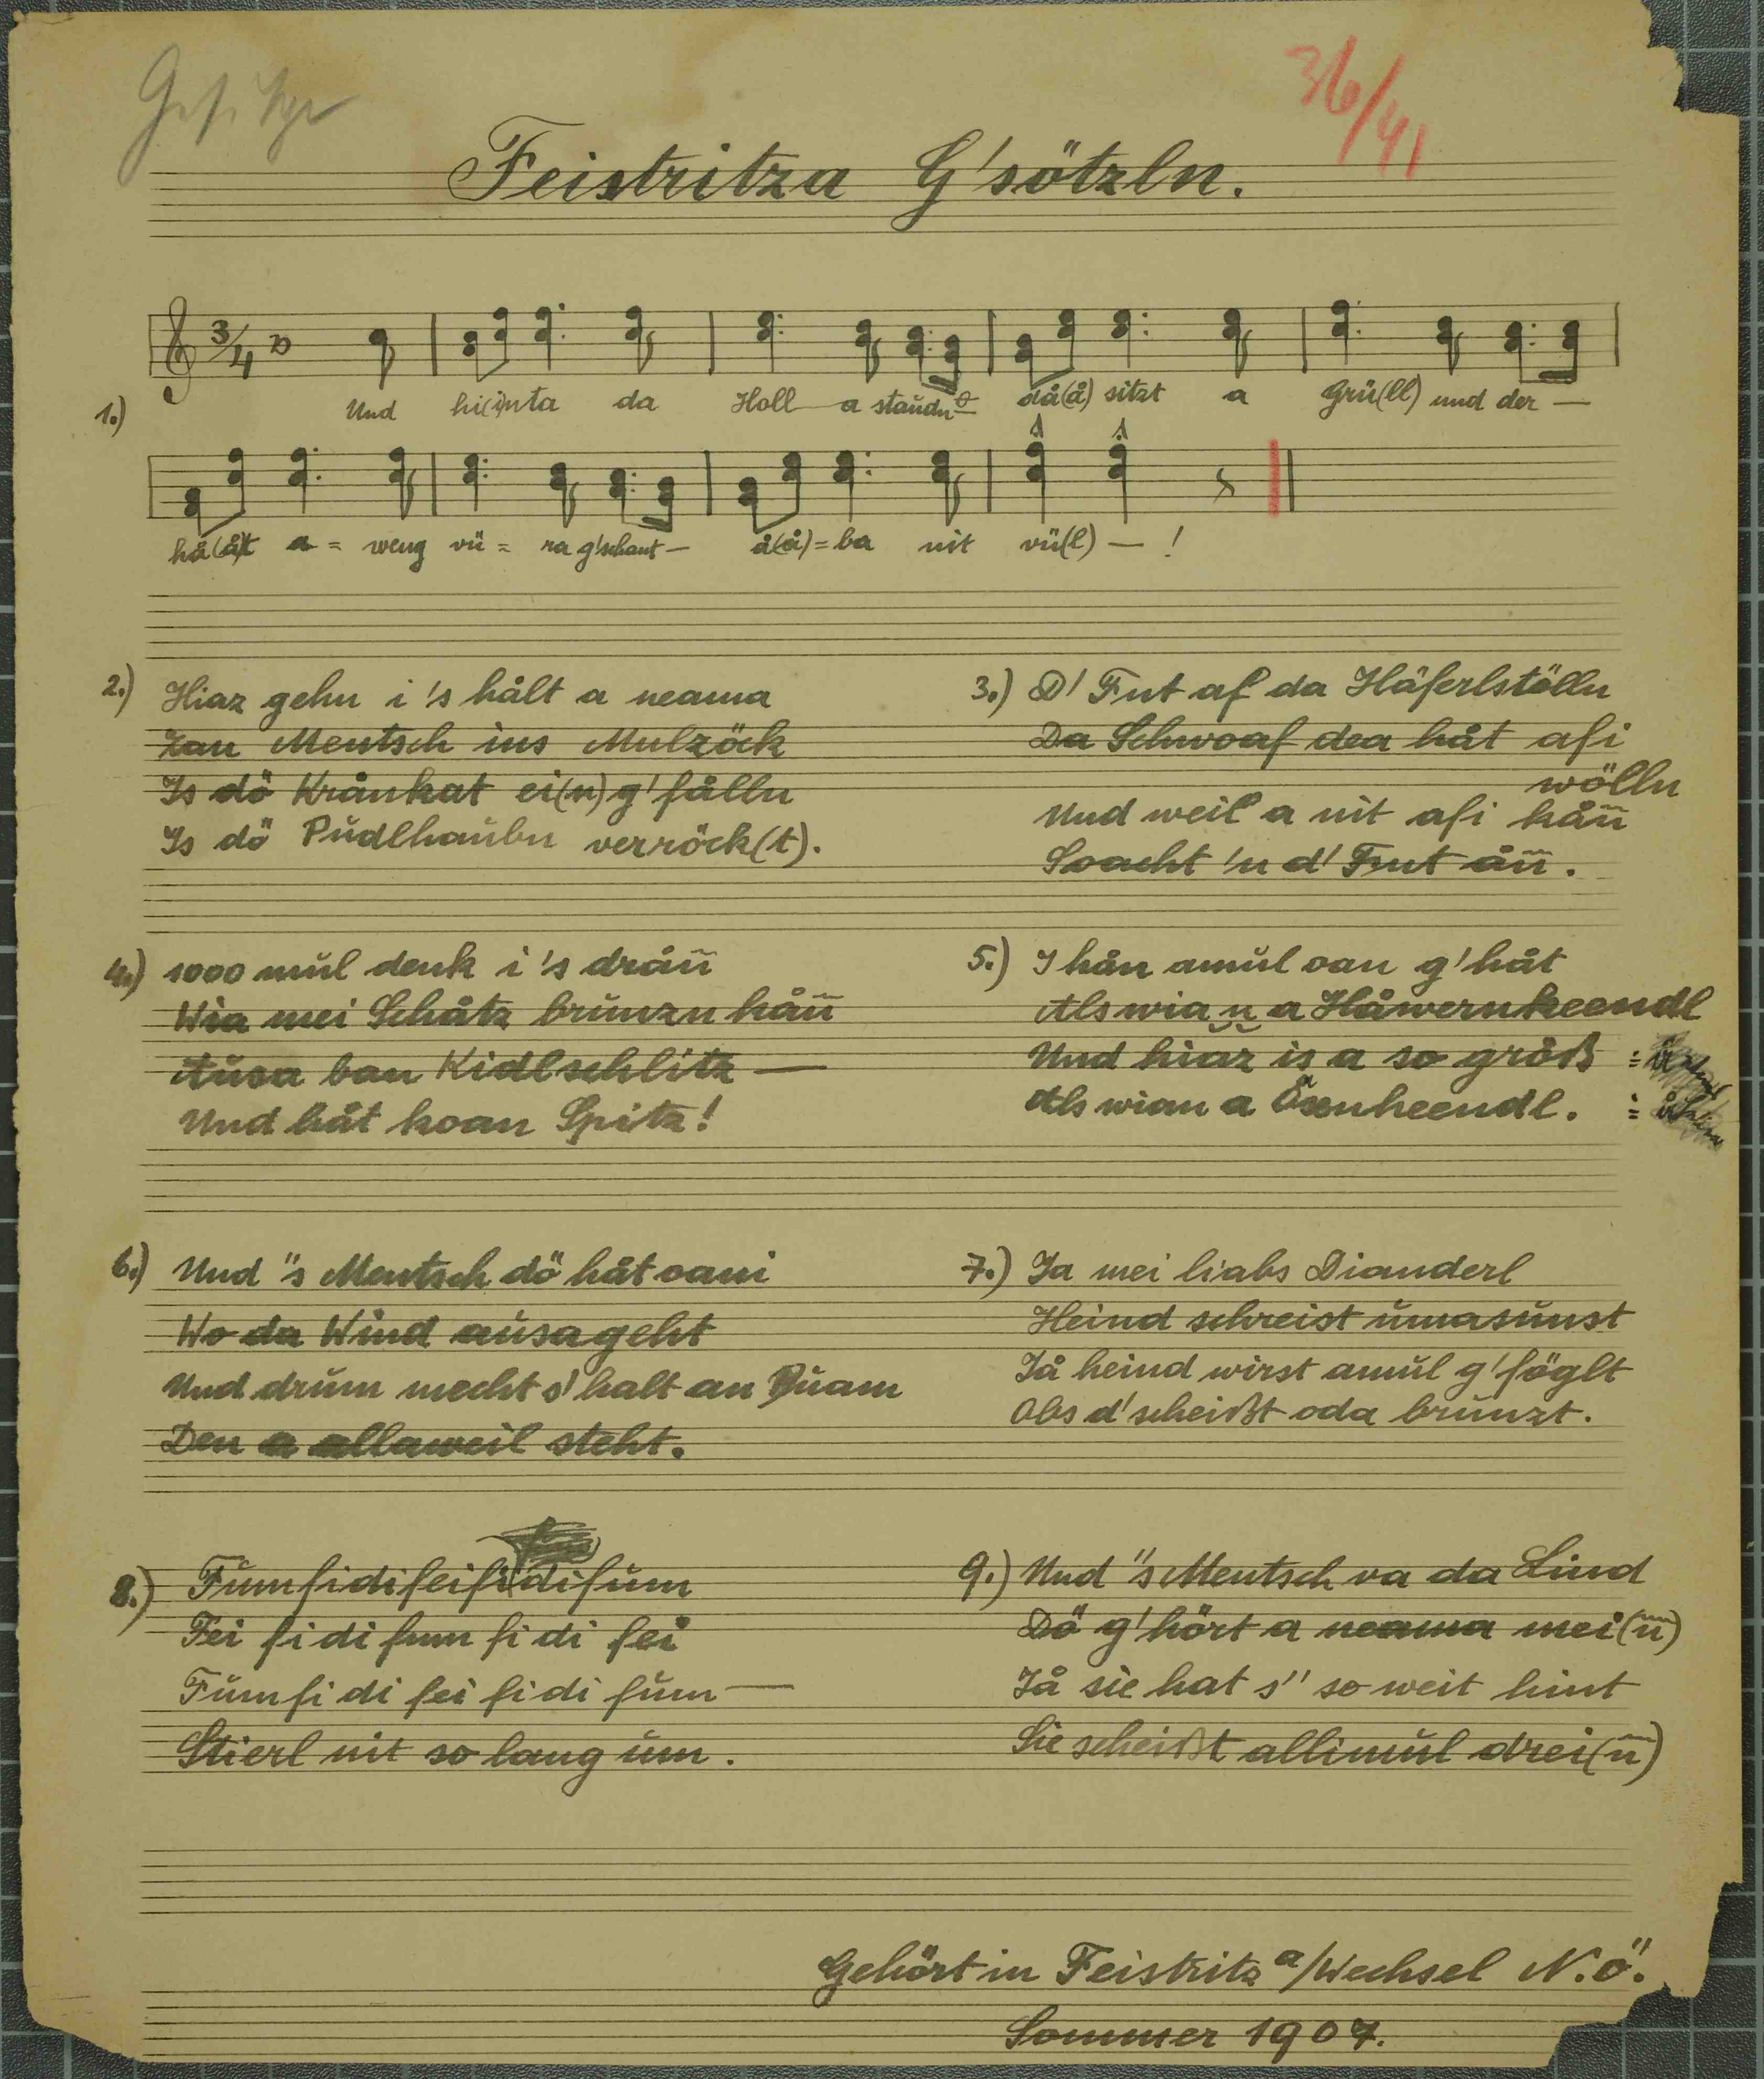 36/41
Feistritza G'sötzln.
3/4
1.) Und hi(i)nta da Holl a staudn då(å) sitzt a Grü(ll) und der —
hå(å)t a = weng vü = ra g'schaut — å(å) = ba nit vü(l) — !
2.) Hiaz gehn i 's hålt a neama
Zan Mentsch ins Mulzöck
Is dö Krånkat ei(n) g'fålln
Is dö Pudlhaubn verröck(t).
3.) D' Fut af da Häferlstölln
Da Schwoaf dea håt afi
wölln
Und weil a nit afi kån̄
Soacht 'n d' Fut ån̄.
4.) 1000 mul denk i 's drån̄
Wia mei Schåtz brunzn kån̄
Ausa ban Kidlschlitz —
Und håt koan Spitz!
5.) I hån amul oan g'håt
Als wia n a Håwernkeendl
Und hiaz is a so größ
Als wian a Öxenheendl.
6.) Und "s Mentsch dö håt oani
Wo da Wind ausageht
Und drum mecht s' halt an Buam
Den a allaweil steht.
7.) Ja mei liabs Dianderl
Heind schreist umasunst
Jå heind wirst amul g'föglt
Obs d' scheißt oda brunzt.
8.) Fumfidifeifidifum
Fei fi di fum fi di fei
Fumfi di fei fi di fum —
Stierl nit so lang um.
9.) Und "s Mentsch va da Lind
Dö g'hört a neama mei(n̄)
Jå sie hat s" so weit hint
Sie scheißt allimul drei(n̄)
Gehört in Feistritz a/Wechsel N.Ö.
Sommer 1907.